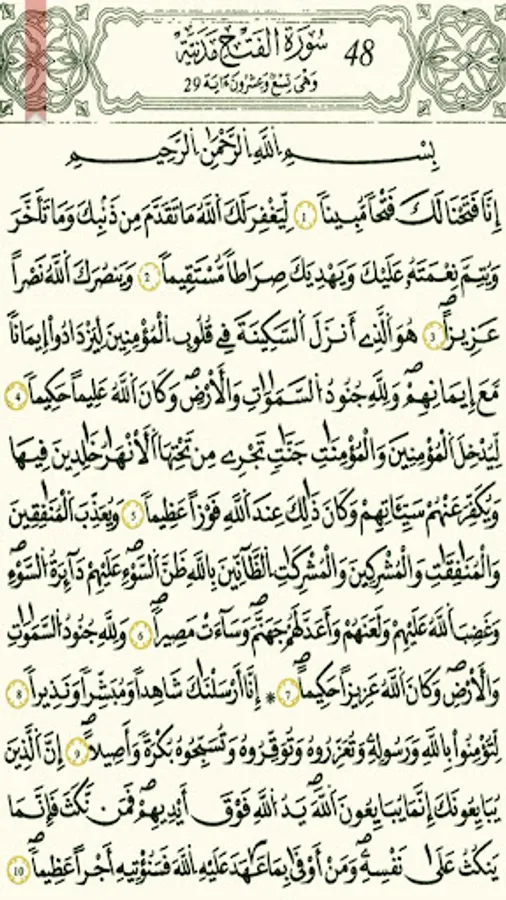 سُورَةُ الْفَتْحِ مَدَنِيَّةٌ 48
وَهْيَ تِسْعٌ وَعِشْرُونَ ءَايَةً 29
بِسْمِ اِ۬للَّهِ اِ۬لرَّحْمَٰنِ اِ۬لرَّحِيمِ
إِنَّا فَتَحْنَا لَكَ فَتْحاً مُّبِيناً 1 لِّيَغْفِرَ لَكَ اَ۬للَّهُ مَا تَقَدَّمَ مِن ذَنۢبِكَ وَمَا تَأَخَّرَ
وَيُتِمَّ نِعْمَتَهُۥ عَلَيْكَ وَيَهْدِيَكَ صِرَٰطاً مُّسْتَقِيماً 2 وَيَنصُرَكَ اَ۬للَّهُ نَصْراً
عَزِيزاًۖ 3 هُوَ اَ۬لذِےٓ أَنزَلَ اَ۬لسَّكِينَةَ فِے قُلُوبِ اِ۬لْمُؤْمِنِينَ لِيَزْدَادُوٓاْ إِيمَٰناً
مَّعَ إِيمَٰنِهِمْۖ وَلِلهِ جُنُودُ اُ۬لسَّمَٰوَٰتِ وَالْأَرْضِۖ وَكَانَ اَ۬للَّهُ عَلِيماً حَكِيماً 4
لِّيُدْخِلَ اَ۬لْمُؤْمِنِينَ وَالْمُؤْمِنَٰتِ جَنَّٰتٍ تَجْرِے مِن تَحْتِهَا اَ۬لْأَنْهَٰرُ خَٰلِدِينَ فِيهَا
وَيُكَفِّرَ عَنْهُمْ سَيِّـَٔاتِهِمْ وَكَانَ ذَٰلِكَ عِندَ اَ۬للَّهِ فَوْزاً عَظِيماً 5 وَيُعَذِّبَ اَ۬لْمُنَٰفِقِينَ
وَالْمُنَٰفِقَٰتِ وَالْمُشْرِكِينَ وَالْمُشْرِكَٰتِ اِ۬لظَّآنِّينَ بِاللَّهِ ظَنَّ اَ۬لسَّوْءِۖ عَلَيْهِمْ دَآئِرَةُ اُ۬لسَّوْءِۖ
وَغَضِبَ اَ۬للَّهُ عَلَيْهِمْ وَلَعَنَهُمْ وَأَعَدَّ لَهُمْ جَهَنَّمَۖ وَسَآءَتْ مَصِيراًۖ 6 وَلِلهِ جُنُودُ اُ۬لسَّمَٰوَٰتِ
وَالْأَرْضِۖ وَكَانَ اَ۬للَّهُ عَزِيزاً حَكِيماًۖ 7 * إِنَّآ أَرْسَلْنَٰكَ شَٰهِداً وَمُبَشِّراً وَنَذِيراً 8
لِّتُؤْمِنُواْ بِاللَّهِ وَرَسُولِهِۦ وَتُعَزِّرُوهُ وَتُوَقِّرُوهُ وَتُسَبِّحُوهُ بُكْرَةً وَأَصِيلاًۖ 9 إِنَّ اَ۬لذِينَ
يُبَايِعُونَكَ إِنَّمَا يُبَايِعُونَ اَ۬للَّهَۖ يَدُ اُ۬للَّهِ فَوْقَ أَيْدِيهِمْۖ فَمَن نَّكَثَ فَإِنَّمَا
يَنكُثُ عَلَىٰ نَفْسِهِۦۖ وَمَنْ أَوْفَىٰ بِمَا عَٰهَدَ عَلَيْهِ اِ۬للَّهَ فَسَنُؤْتِيهِ أَجْراً عَظِيماًۖ 10